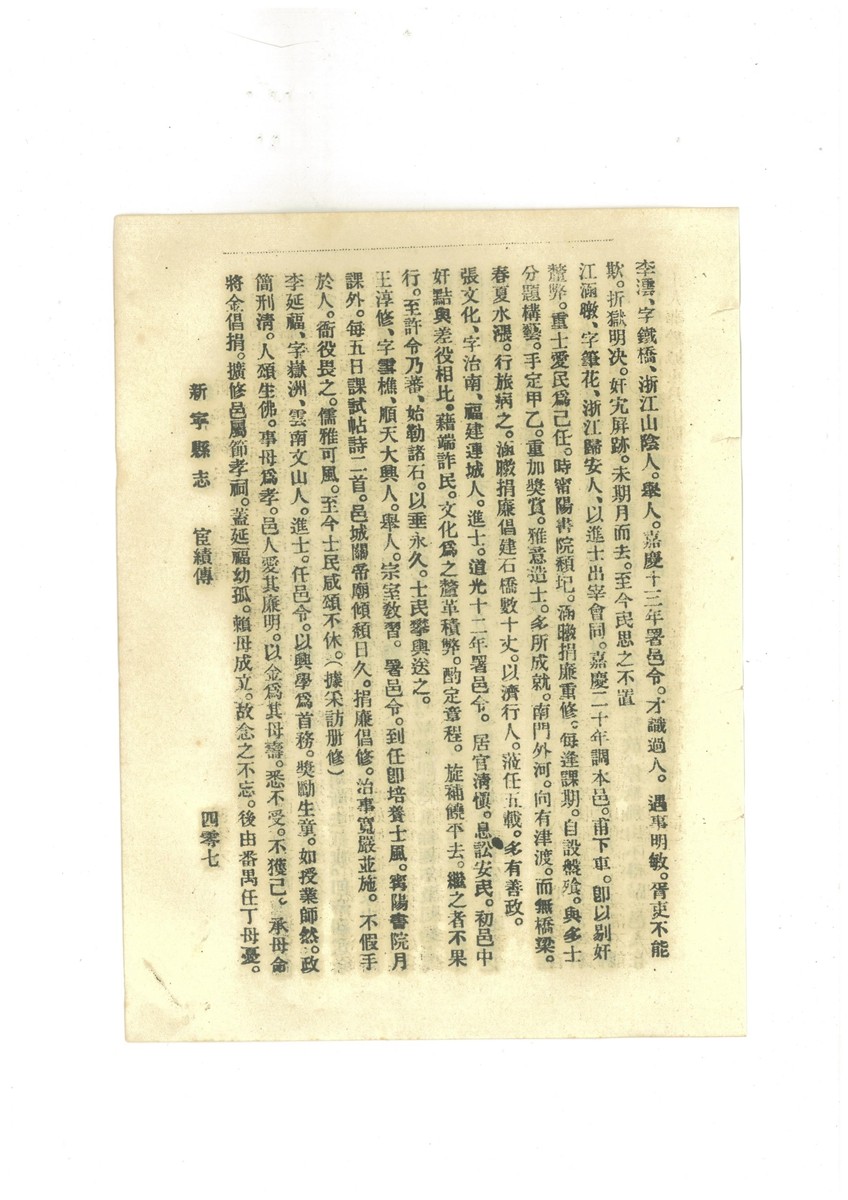 李澐、字鐵橋、浙江山陰人。舉人。嘉慶十三年署邑令。才識過人。遇事明敏。胥吏不能
欺。折獄明决。奸宄屏跡。未期月而去。至今民思之不置
江涵暾、字筆花、浙江歸安人、以進士出宰會同。嘉慶二十年調本邑。甫下車。卽以剔奸
釐弊。重士愛民爲己任。時甯陽書院頹圮。涵暾捐廉重修。每逢課期。自設盤飱。與多士
分題構藝。手定甲乙。重加獎賞。雅意造士。多所成就。南門外河。向有津渡。而無橋梁。
春夏水漲。行旅病之。涵暾捐廉倡建石橋數十丈。以濟行人。涖任五載。多有善政。
張文化、字治南、福建連城人。進士。道光十二年署邑令。居官清愼。息訟安民。初邑中
奸黠與差役相比。藉端詐民。文化爲之釐革積弊。酌定章程。旋補饒平去。繼之者不果
行。至許令乃蕃、始勒諸石。以垂永久。士民攀輿送之。
王淳修、字雪樵、順天大興人。舉人。宗室敎習。署邑令。到任卽培養士風。甯陽書院月
課外。每五日課試帖詩二首。邑城關帝廟傾頹日久。捐廉倡修。治事寬嚴並施。不假手
於人。衙役畏之。儒雅可風。至今士民咸頌不休。（據采訪册修）
李延福、字嶽洲、雲南文山人。進士。任邑令。以興學爲首務。獎勵生童。如授業師然。政
簡刑清。人頌生佛。事母爲孝。邑人愛其廉明。以金爲其母壽。悉不受。不獲已。承母命
將金倡捐。擴修邑屬節孝祠。蓋延福幼孤。賴母成立。故念之不忘。後由番禺任丁母憂。
新寧縣志 宦績傳 四零七